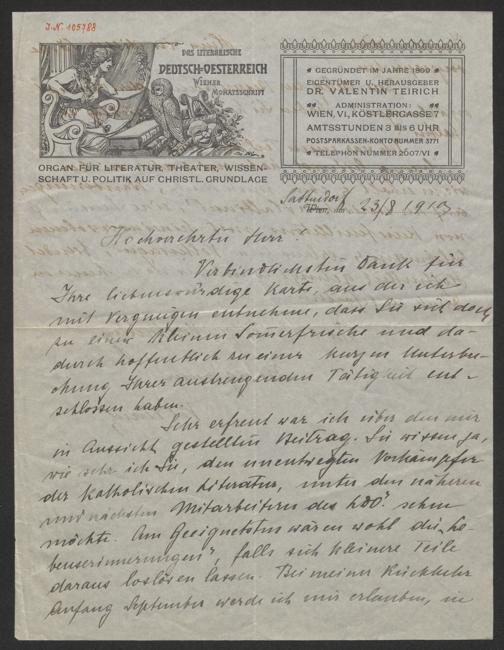 J.N. 105788
DAS LITERARISCHE
DEUTSCH-OESTERREICH
WIENER
MONATSSCHRIFT
ORGAN FÜR LITERATUR, THEATER, WISSEN-
SCHAFT U. POLITIK AUF CHRISTL. GRUNDLAGE
GEGRÜNDET IM JAHRE 1899
EIGENTÜMER U. HERAUSGEBER
DR. VALENTIN TEIRICH
ADMINISTRATION:
WIEN, VI., KÖSTLERGASSE 7
AMTSSTUNDEN 3 BIS 6 UHR
POSTSPARKASSEN-KONTO NUMMER 3771
TELEPHON NUMMER 2607/VI
Wien, am 23/8 1910
Hochverehrter Herr!
Verbindlichsten Dank für
Ihre liebenswürdige Karte, aus der ich
mit Vergnügen entnehme, dass Sie sich doch
zu einer kleinen Sommerfrische und da-
durch hoffentlich zu einer kurzen Unterbre-
chung Ihrer anstrengenden Tätigkeit ent-
schlossen haben.
Sehr erfreut war ich über den mir
in Aussicht gestellten Beitrag. Sie wissen ja,
wie sehr ich Sie, den unentwegten Vorkämpfer
der katholischen Literatur, unter den näheren
und nächsten Mitarbeitern des LDÖ. sehen
möchte. Am Geeignetsten wären wohl die „Le-
benserinnerungen", falls sich kleinere Teile
daraus loslösen lassen. Bei meiner Rückkehr
Anfang September werde ich mir erlauben, in